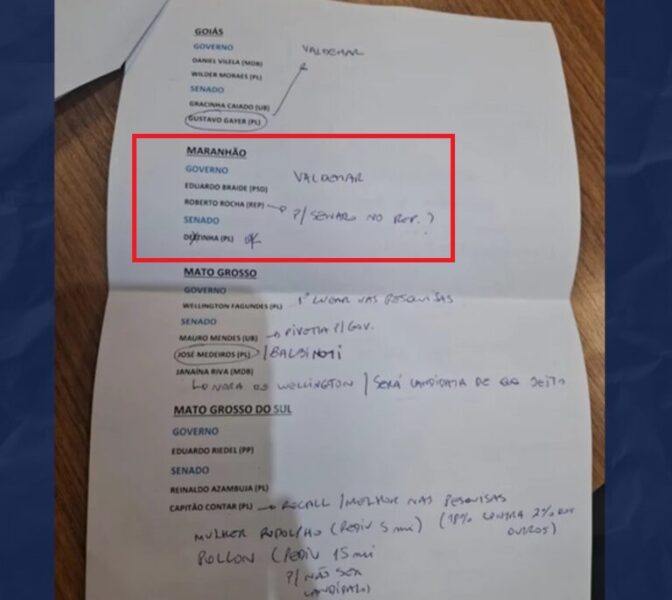 GOIÁS
GOVERNO
VALDEMAR
DANIEL VILELA (MDB)
WILDER MORAES (PL)
SENADO
GRACINHA CAIADO (UB)
GUSTAVO GAYER (PL)
MARANHÃO
GOVERNO
VALDEMAR
EDUARDO BRAIDE (PSD)
ROBERTO ROCHA (REP) P/ SENADO NO REP. ?
SENADO
DETINHA (PL) OK
MATO GROSSO
GOVERNO
WELLINGTON FAGUNDES (PL) 1º LUGAR NAS PESQUISAS
SENADO
MAURO MENDES (UB) PIVETTA P/ GOV.
JOSÉ MEDEIROS (PL) / BALBINOTI
JANAÍNA RIVA (MDB)
DO WELLINGTON / SERÁ CANDIDATA DE QQ JEITO
MATO GROSSO DO SUL
GOVERNO
EDUARDO RIEDEL (PP)
SENADO
REINALDO AZAMBUJA (PL)
CAPITÃO CONTAR (PL) RECALL / MELHOR NAS PESQUISAS
MULHER RODOLFHO (PEDIU 5 mi) (18% CONTRA 2% DOS OUTROS)
POLLON (PEDIU 15 mi
P/ NÃO SER
CANDIDATO)